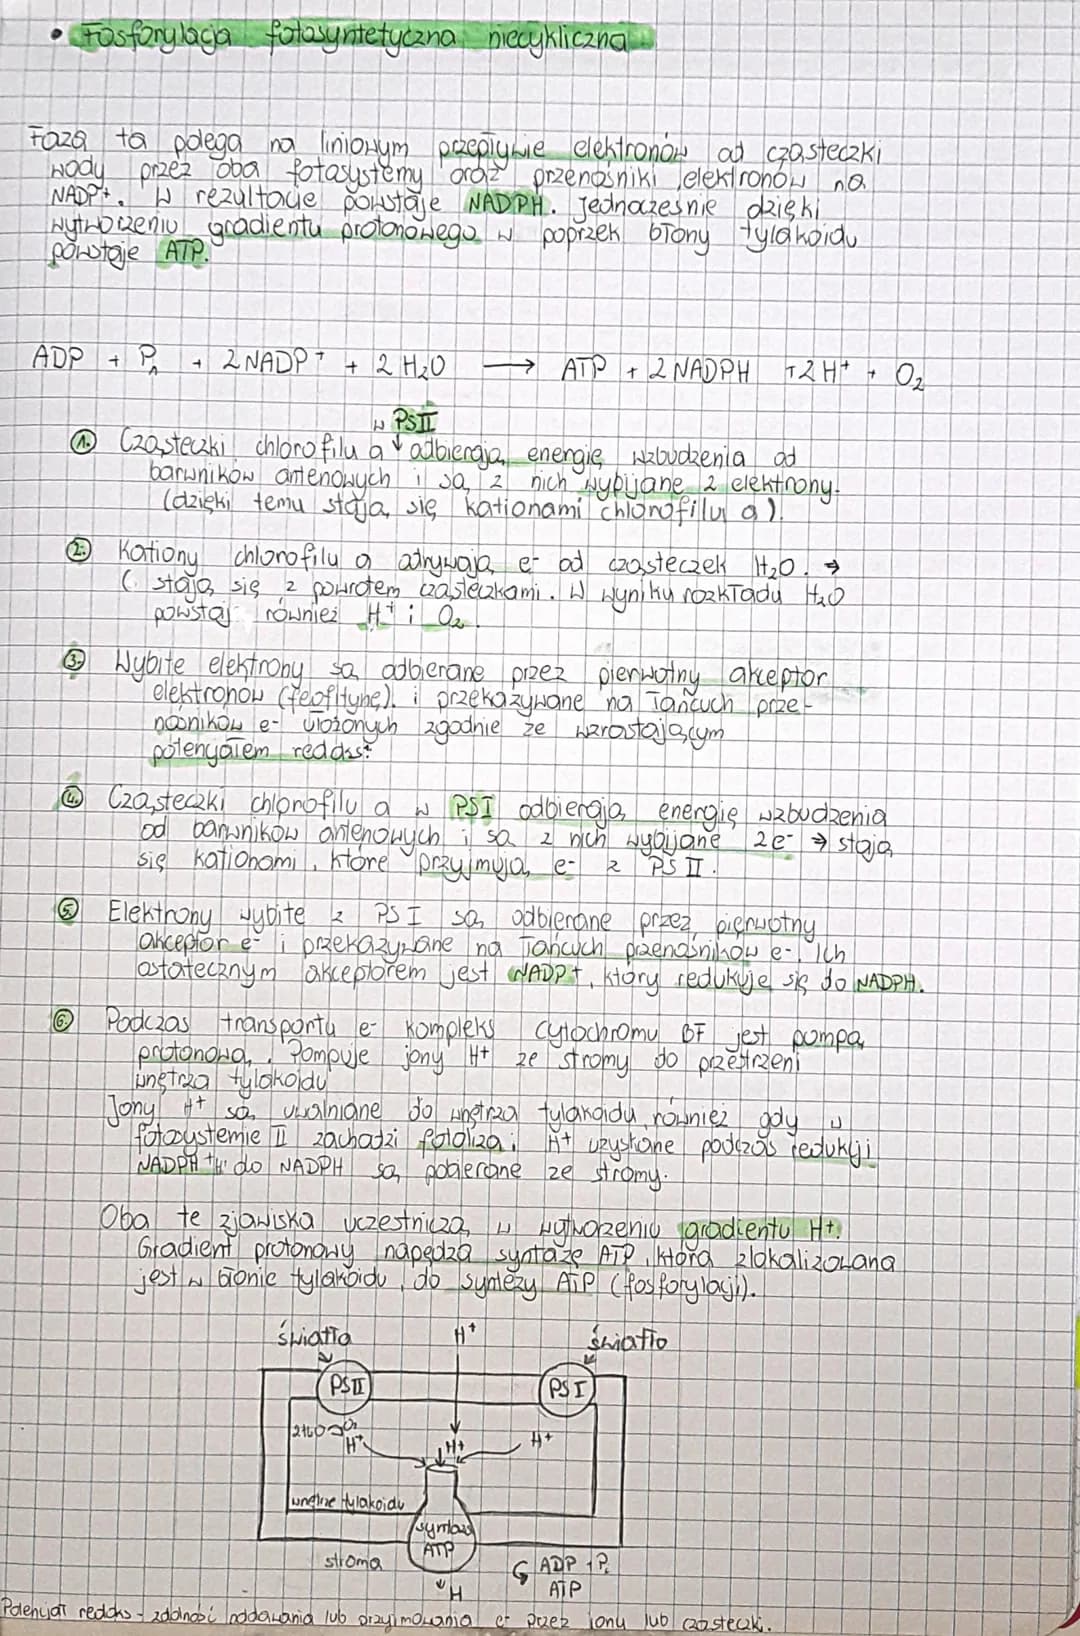 • Fosforylacja fotosyntetyczna niecykliczna
Faza ta polega na liniowym przepływie elektronów od cząsteczki
wody przez oba fotosystemy oraz przenośniki elektronów na
NADP+. W rezultacie powstaje NADPH. Jednocześnie dzięki
wytworzeniu gradientu protonowego w poprzek błony tylakoidu
powstaje ATP.
ADP + Pn + 2 NADP+ + 2 H2O → ATP + 2 NADPH + 2 H+ + O2
w PSII
1. Cząsteczki chlorofilu a ↓ odbierają energię wzbudzenia od
barwników antenowych i są z nich wybijane 2 elektrony.
(dzięki temu stają się kationami chlorofilu a).
2. Kationy chlorofilu a odrywają e- od cząsteczek H2O. →
( stają się z powrotem cząsteczkami. W wyniku rozkładu H2O
powstaj również H+ i O2.
3. Wybite elektrony są odbierane przez pierwotny akceptor
elektronów (feofitynę) i przekazywane na łańcuch prze-
nośników e- ułożonych zgodnie ze wzrastającym
potencjałem redoks:
4. Cząsteczki chlorofilu a w PSI odbierają energię wzbudzenia
od barwników antenowych i są z nich wybijane 2e- → stają
się kationami, które przyjmują e- z PS II.
5. Elektrony wybite z PS I są odbierane przez pierwotny
akceptor e- i przekazywane na łańcuch przenośników e-. Ich
ostatecznym akceptorem jest NADP+, który redukuje się do NADPH.
6. Podczas transportu e- kompleks cytochromu BF jest pompą
protonową. Pompuje jony H+ ze stromy do przestrzeni
wnętrza tylakoidu
Jony H+ są uwalniane do wnętrza tylakoidu również gdy w
fotosystemie II zachodzi fotoliza i H+ uzyskane podczas redukcji
NADPH +H do NADPH są pobierane ze stromy.
Oba te zjawiska uczestniczą w wytworzeniu gradientu H+.
Gradient protonowy napędza syntazę ATP, która zlokalizowana
jest w błonie tylakoidu, do syntezy ATP (fosforylacji).
światło H+ światło
PSII PSI
2H2O O2
H+ H+ H+
wnętrze tylakoidu
syntaza
ATP
stroma ADP + Pi
H ATP
Potencjał redoks - zdolność oddawania lub przyjmowania e- przez jony lub cząsteczki.